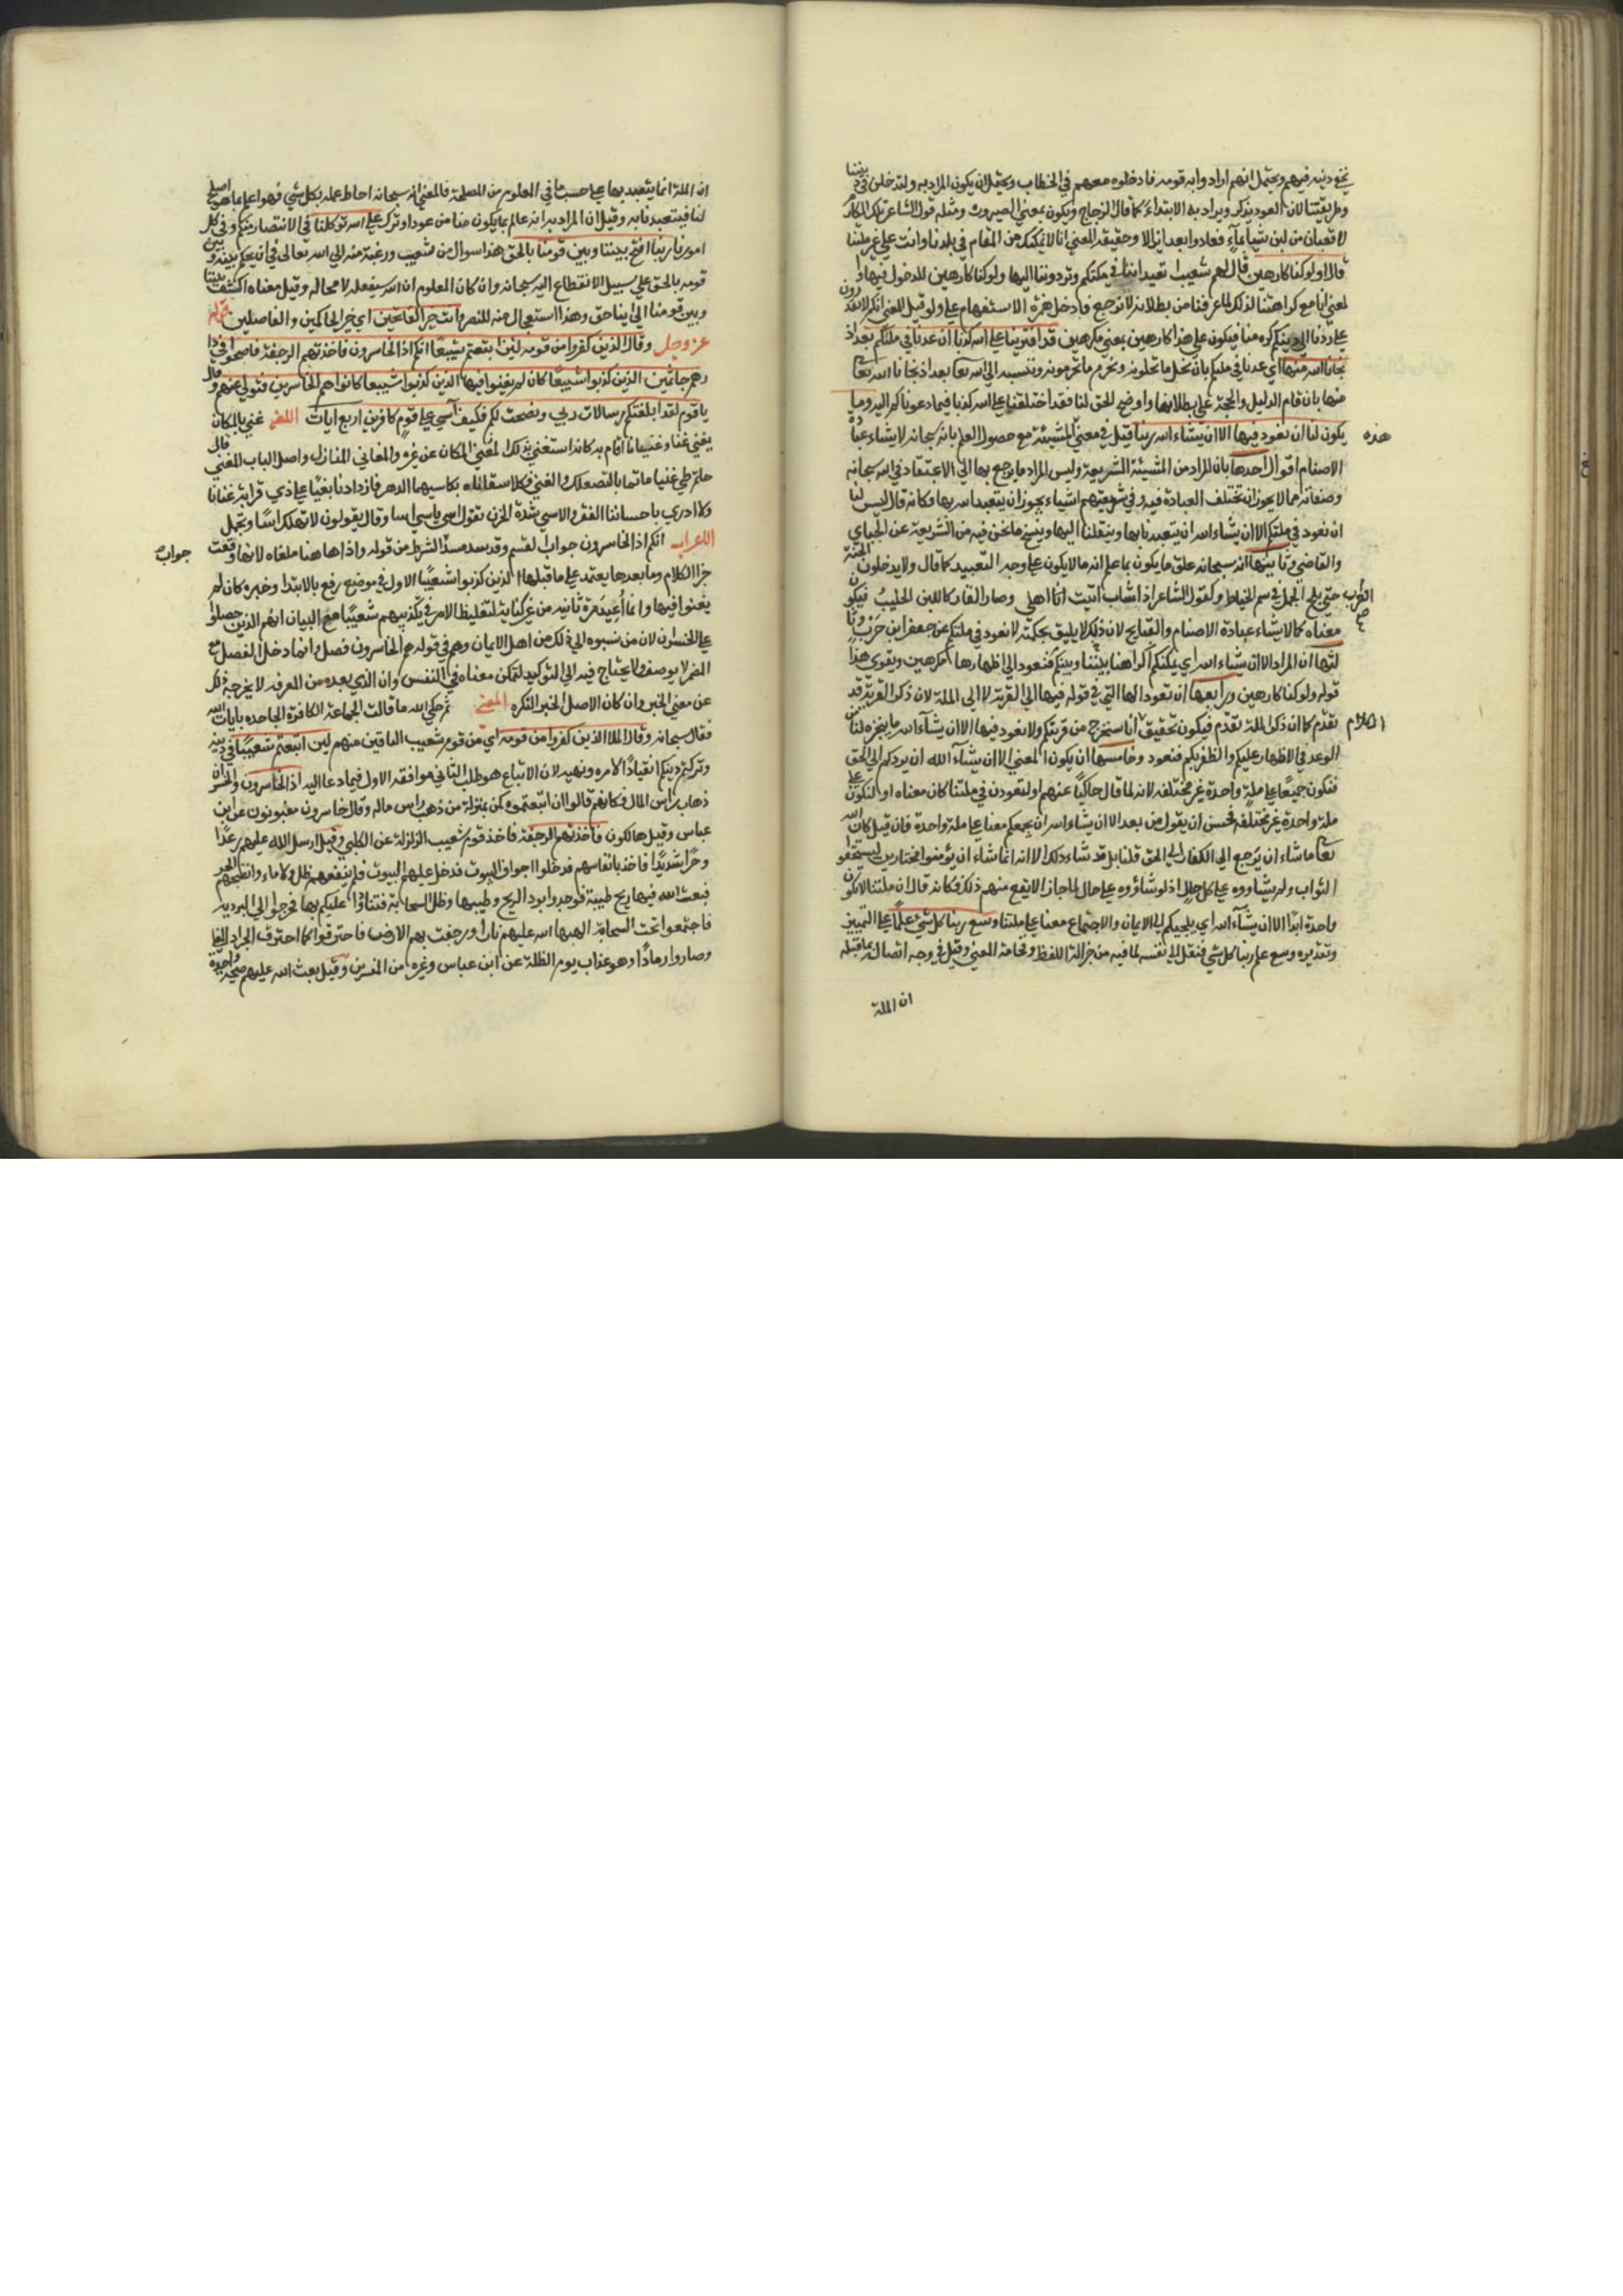 يخفي دينه فيهم ويحتمل انهم ارادوا به قومه فادخلوه معهم في الخطاب ويحتمل ان يكون المراد به او لتدخلن في ديننا
وطريقتنا لان العود يذكر ويراد به الابتداء كما قال الزجاج ويكون بمعني الصيرورة ومثله قول الشاعر تلك المكارم
لا قعبان من لبن شيبا بماء فعادا بعد ابوالا وحقيقة المعني انا لا نمكنك من المقام في بلدنا وانت علي غير ملتنا
قال اولو كنا كارهين قال لهم شعيب اتعيدوننا في ملتكم وتردوننا اليها ولو كنا كارهين للدخول فيها و
المعني انا مع كراهتنا لذلك لما عرفنا من بطلانه لا نرجع فادخل همزة الاستفهام علي ولو وقيل المعني انكم لا تقدرون
علي ردنا الي دينكم كره منا فيكون علي هذا كارهين بمعني مكرهين قد افترينا علي الله كذبا ان عدنا في ملتكم بعد اذ
نجانا الله منها اي عدنا في ملتكم بان نحل ما تحلونه ونحرم ما تحرمونه وننسبه الي الله تعا بعد اذ نجانا الله تعا
منها بان قام الدليل والحجة علي بطلانها واوضح الحق لنا فقد اختلقنا علي الله كذبا فيما دعوناكم اليه وما
يكون لنا ان نعود فيها الا ان يشاء الله ربنا قيل في معني المشيئة مع حصول العلم بانه سبحانه لا يشاء عبادة
هذه
الاصنام اقوال احدها بان المراد من المشيئة الشريعة وليس المراد ما يرجع بها الي الاعتقاد في الله سبحانه
وصفاته مما لا يجوز ان تختلف العبادة فيه وفي شريعتهم اشياء يجوز ان يتعبد الله بها فكانه قال ليس لنا
ان نعود في ملتكم الا ان يشاء الله ان يتعبدنا بها وينقلنا اليها وينسخ ما نحن فيه من الشريعة عن الجبائي
والقاضي وثانيها انه سبحانه علق ما يكون بما علم انه ما لا يكون علي وجه التبعيد كما قال ولا يدخلون الجنة
حتي يلج الجمل في سم الخياط وكقول الشاعر اذا شاب الغراب اتيت اهلي وصار القار كاللبن الحليب فيكون
الغراب صح
معناه كما لا يشاء عبادة الاصنام والقبايح لان ذلك لا يليق بحكمته لا نعود في ملتكم عن جعفر ابن حرب وثا
لثها ان المراد الا ان يشاء الله اي يمكنكم اكراهنا بيننا وبينكم فنعود الي اظهارها مكرهين ويقوي هذا
قوله ولو كنا كارهين ورابعها ان تعود الها التي في قوله فيها الي القرية لا الي الملة لان ذكر القرية قد
تقدم كما ان ذكر الملة تقدم فيكون تحقيق انا سنخرج من قريتكم ولا نعود فيها الا ان يشاء الله بما ينجزه لنا من
الكلام
الوعد في الاظهار عليكم والظفر بكم فنعود وخامسها ان يكون المعني الا ان يشاء الله ان يردكم الي الحق
فنكون جميعا علي ملة واحدة غير مختلفه لانه لما قال حاكيا عنهم او لتعودن في ملتنا كان معناه او لنكونن علي
ملة واحدة غير مختلفه فحسن ان يقول من بعد الا ان يشاء الله ان يجمعكم معنا علي ملة واحدة فان قيل كان الله
تعا ما شاء ان يرجع الي الكفار الي الحق قلنا بل قد شاء ذلك الا انه انما شاء ان يؤمنوا مختارين ليستحقوا
الثواب ولم يشاووه علي كل حال اذ لو شاؤوه علي حال لما جاز الا يقع منهم ذلك فكانه قال ان ملتنا لا تكون
واحدة ابدا الا ان يشاء الله اي يلجيكم الي الايمان والاجتماع معنا علي ملتنا وسع ربنا كل شي علما علي التمييز
وتقديره وسع علم ربنا كل شي فنقل الي نفسه لما فيه من جزالة اللفظ وفخامة المعني وقيل في وجه اتصاله بما قبله
ان الملة
ان الملة انما يتعبد بها علي حسب ما في المعلوم من المصلحة فالمعني انه سبحانه احاط علمه بكل شي فهو اعلم بما هو اصلح
لنا فيتعبدنا به وقيل ان المراد به انه عالم بما يكون منا من عود او ترك علي الله توكلنا في الانتصار منكم وفي كل
امورنا ربنا افتح بيننا وبين قومنا بالحق هذا سوال من شعيب ورغبة منه الي الله تعالي في ان يحكم بينه وبين
قومه بالحق علي سبيل الانقطاع اليه سبحانه وان كان المعلوم ان الله سيفعله لا محاله وقيل معناه اكشف بيننا
وبين قومنا اي اينا حق وهذا استعجال منه للنصر وانت خير الفاتحين اي خير الحاكمين والفاصلين قوله
عز وجل وقال الذين كفروا من قومه لئن اتبعتم شعيبا انكم اذا لخاسرون فاخذتهم الرجفة فاصبحوا في دا
رهم جاثمين الذين كذبوا شعيبا كان لم يغنوا فيها الذين كذبوا شعيبا كانوا هم الخاسرين فتولي عنهم وقال
يا قوم لقد ابلغتكم رسالات ربي ونصحت لكم فكيف آسي علي قوم كافرين اربع ايات اللغه غني بالمكان
يغني غنا وغنيانا اقام به كانه استغني بذلك المكان عن غيره والمغاني المنازل واصل الباب الغني قال
حاتم طي غنينا زمانا بالتصعلك والغني فكلا سقاناه بكاسيهما الدهر فما زادنا بغيا علي ذي قرابة غنانا
ولا ازري باحسابنا الفقر والاسي شدة الحزن تقول اسي ياسي اسا وقال يقولون لا تهلك اسا وتجمل
الاعراب انكم اذا لخاسرون جواب لقسم وقد سد مسد الشرط من قوله واذا هاهنا ملغاه لانها وقعت
جواب
جزا الكلام وما بعدها يعتمد علي ما قبلها الذين كذبوا شعيبا الاول في موضع رفع بالابتدا وخبره كان لم
يغنوا فيها وانما اعيد مرة ثانيه من غير كناية لتغليظ الامر في تكذيبهم شعيبا مع البيان انهم الذين حصلوا
علي الخسران لان من نسبوه الي ذلك من اهل الايمان وهم في قوله هم الخاسرون فصل وانما دخل الفصل مع
المضمر لا يوصف ولا يحتاج فيه الي التوكيد لتمكن معناه في النفس وان الذي بعده من المعرفه لا يخرجه ذلك
عن معني الخبر وان كان الاصل الخبر النكره المعني ثم حكي الله ما قالت الجماعة الكافرة الجاحده بايات الله
فقال سبحانه وقال الملا الذين كفروا من قومه اي من قوم شعيب الباقين منهم لين اتبعتم شعيبا في دينه
وتركتم دينكم انقيادا لامره ونهيه لان الاتباع هو طلب الثاني موافقه الاول فيما دعا اليه اذا لخاسرون والخسران
ذهاب راس المال فكانهم قالوا ان اتبعتموه كن بمنزلة من ذهب راس ماله وقال خاسرون مغبونون عن ابن
عباس وقيل هالكون فاخذتهم الرجفة فاخذ قوم شعيب الزلزلة عن الكلبي وقيل ارسل الله عليهم رعدا
وحرا شديدا فاخذ بانفاسهم فدخلوا اجواف البيوت فدخل عليهم البيوت فلم ينفعهم ظل ولا ماء وانضجهم الحر
فبعث الله فيها ريح طيبة فوجدوا برد الريح وطيبها وظل السحابة فتنادوا عليكم بها فخرجوا الي البرية
فاجتمعوا تحت السحابة الهبها الله عليهم نارا ورجفت بهم الارض فاحترقوا كما احترق الجراد
وصاروا رمادا وهو عذاب يوم الظلة عن ابن عباس وغيره من المفسرين وقيل بعث الله عليهم صيحة واحدة